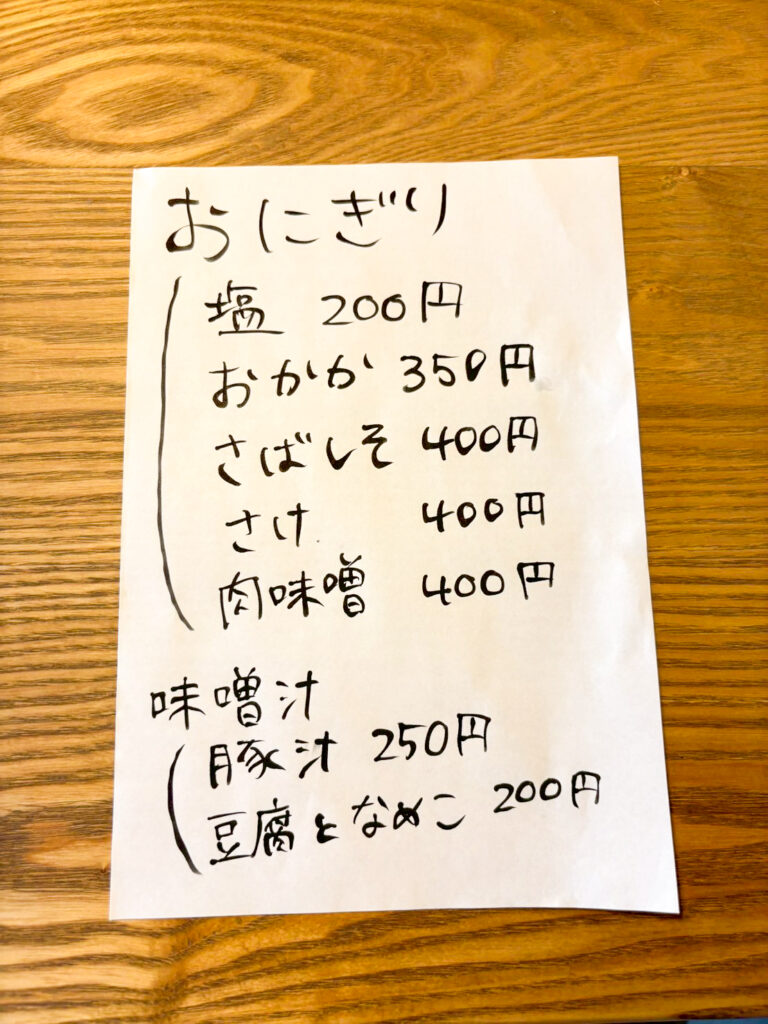 おにぎり
塩 200円
おかか 350円
さばしそ 400円
さけ 400円
肉味噌 400円
味噌汁
豚汁 250円
豆腐となめこ 200円